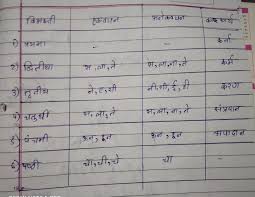 विभक्ती एकवचन अनेकवचन
१) प्रथमा - - कर्ता
२) द्वितीया स, ला, ते स, ला, ना, ते कर्म
३) तृतीया ने, ए, शी नी, शी, ई, ही करण
४) चतुर्थी स, ला, ते स, ला, ना, ते संप्रदान
५) पंचमी ऊन, हून ऊन, हून अपादान
६) षष्ठी चा, ची, चे चा